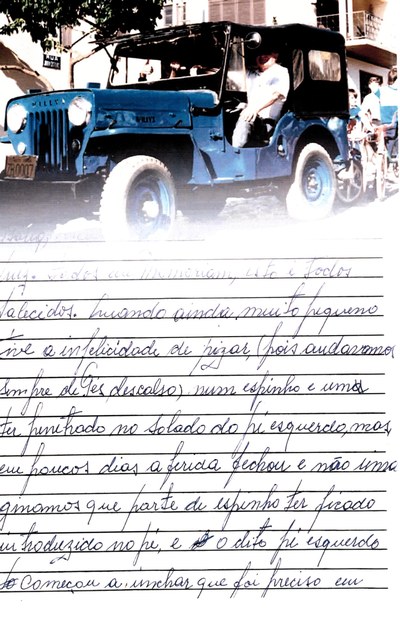 WILLYS
luz. Todos in Memoriam, isto é todos
falecidos. Quando ainda muito pequeno
tive a infelicidade de pizar, (pois andavamos
sempre de Pes, descalso) num espinho e uma
ter penitrado no solado do pé esquerdo, mas,
em poucos dias a ferida fechou e não uma
ginamos que parte de espinho ter ficado
introduzido no pé, e o dito pé esquerdo
Começou a inchar que foi preciso em